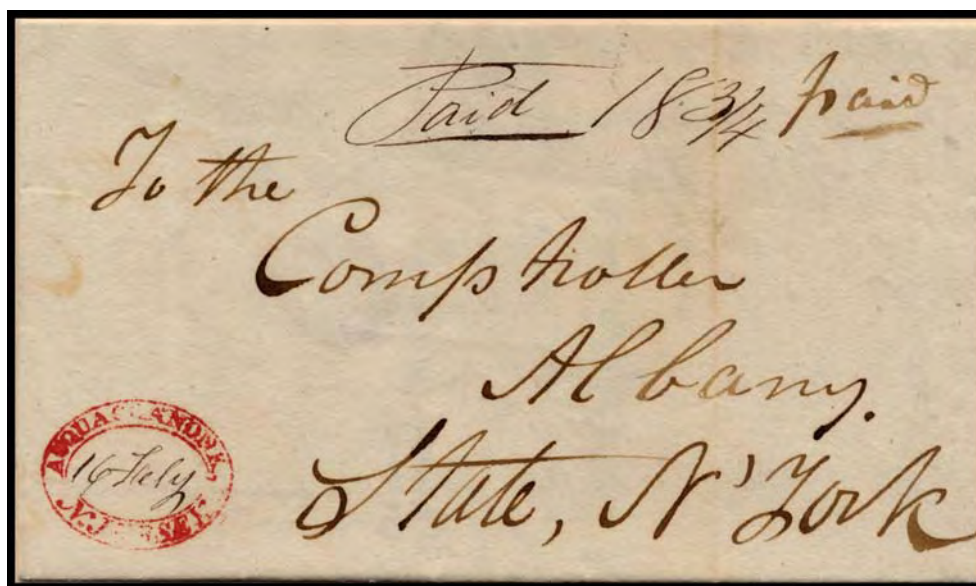 Paid 18 3/4 paid
To the
Comptroller
Albany.
State, N' York
ACQUACKANONK,
16 July
N. JERSEY